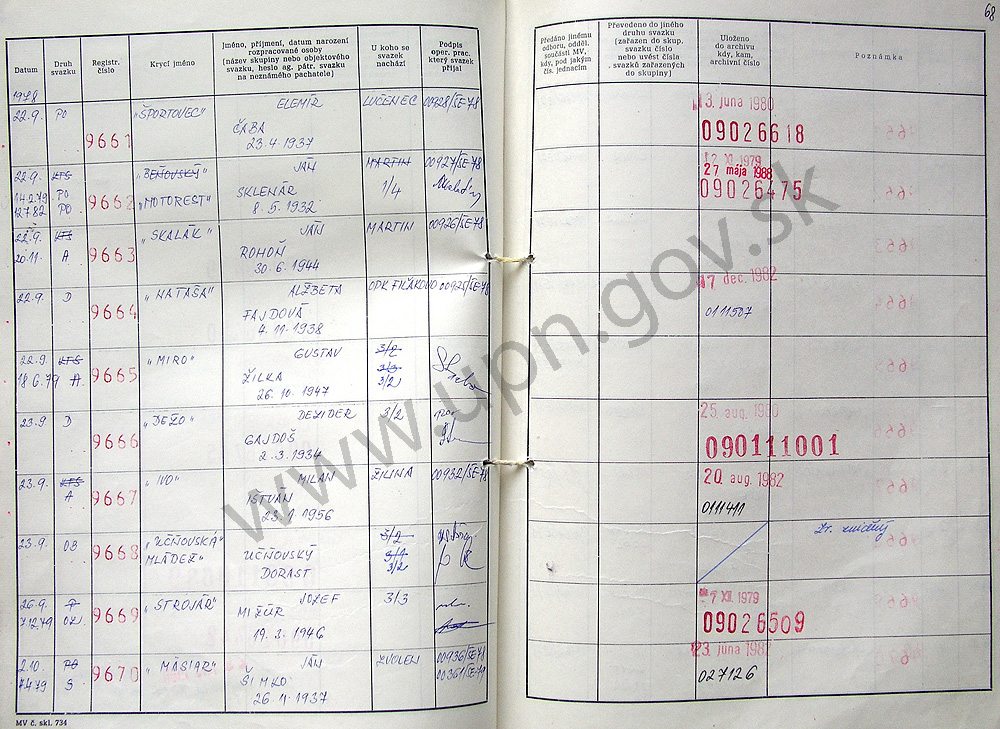 68
Datum
Druh svazku
Registr. číslo
Krycí jméno
Jméno, příjmení, datum narození
rozpracované osoby
(název skupiny nebo objektového
svazku, heslo ag. pátr. svazku
na neznámého pachatele)
U koho se
svazek
nachází
Podpis
oper. prac.
který svazek
přijal
Předáno jinému
odboru, odděl.
součásti MV,
kdy, pod jakým
čís. jednacím
Převedeno do jiného
druhu svazku
(zařazen do skup.
svazku číslo
nebo uvést čísla
svazků zařazených
do skupiny)
Uloženo
do archivu
kdy, kam,
archivní číslo
Poznámka
1978
22.9. PO 9661 „ŠPORTOVEC" ELEMÍR LUČENEC 00928/ŠE-78 13. júna 1980
ČABA 09026618
23.4.1937
22.9. KTS „BEŇOVSKÝ" JÁN MARTIN 00927/ŠE-78 XI. 1979
14.2.79 PO 9662 „MOTOREST" SKLENÁR 1/4 27 mája 1988
12.7.82 PO 8.5.1932 09026475
22.9. KTS 9663 „SKALÁK" JÁN MARTIN 00926/ŠE-78
20.11. A ROHOŇ
30.6.1944
22.9. D 9664 „NATAŠA" ALŽBETA ODK FIĽAKOVO 00925/ŠE-78 17 dec. 1982
FAJDOVÁ 0111507
4.11.1938
22.9. KTS 9665 „MIRO" GUSTAV 3/2
18.6.79 A. ŽILKA 3/3
26.10.1947 3/2
23.9 D 9666 „DEŽO" DEZIDER 3/2 25 aug. 1980
GAJDOŠ 090111001
2.3.1934
23.9. KTS 9667 „IVO" MILAN ŽILINA 00932/ŠE-78 20 aug. 1982
A ISTVÁN 0111411
1956
23.9. OB 9668 „UČŇOVSKÁ 3/2
MLÁDEŽ" UČŇOVSKÝ 3/1
DORAST 3/2
26.9. 9669 „STROJÁR" JOZEF 3/3 XII. 1979
7.12.79 MIŽÚR 09026509
19.3.1946
2.10. PO 9670 „MÄSIAR" JÁN ZVOLEN 00936/ŠE-71 23. júna 1982
7.4.79 S ŠIMKO 00361/ŠE-79 027126
26.4.1937
MV č. skl. 734
www.upn.gov.sk